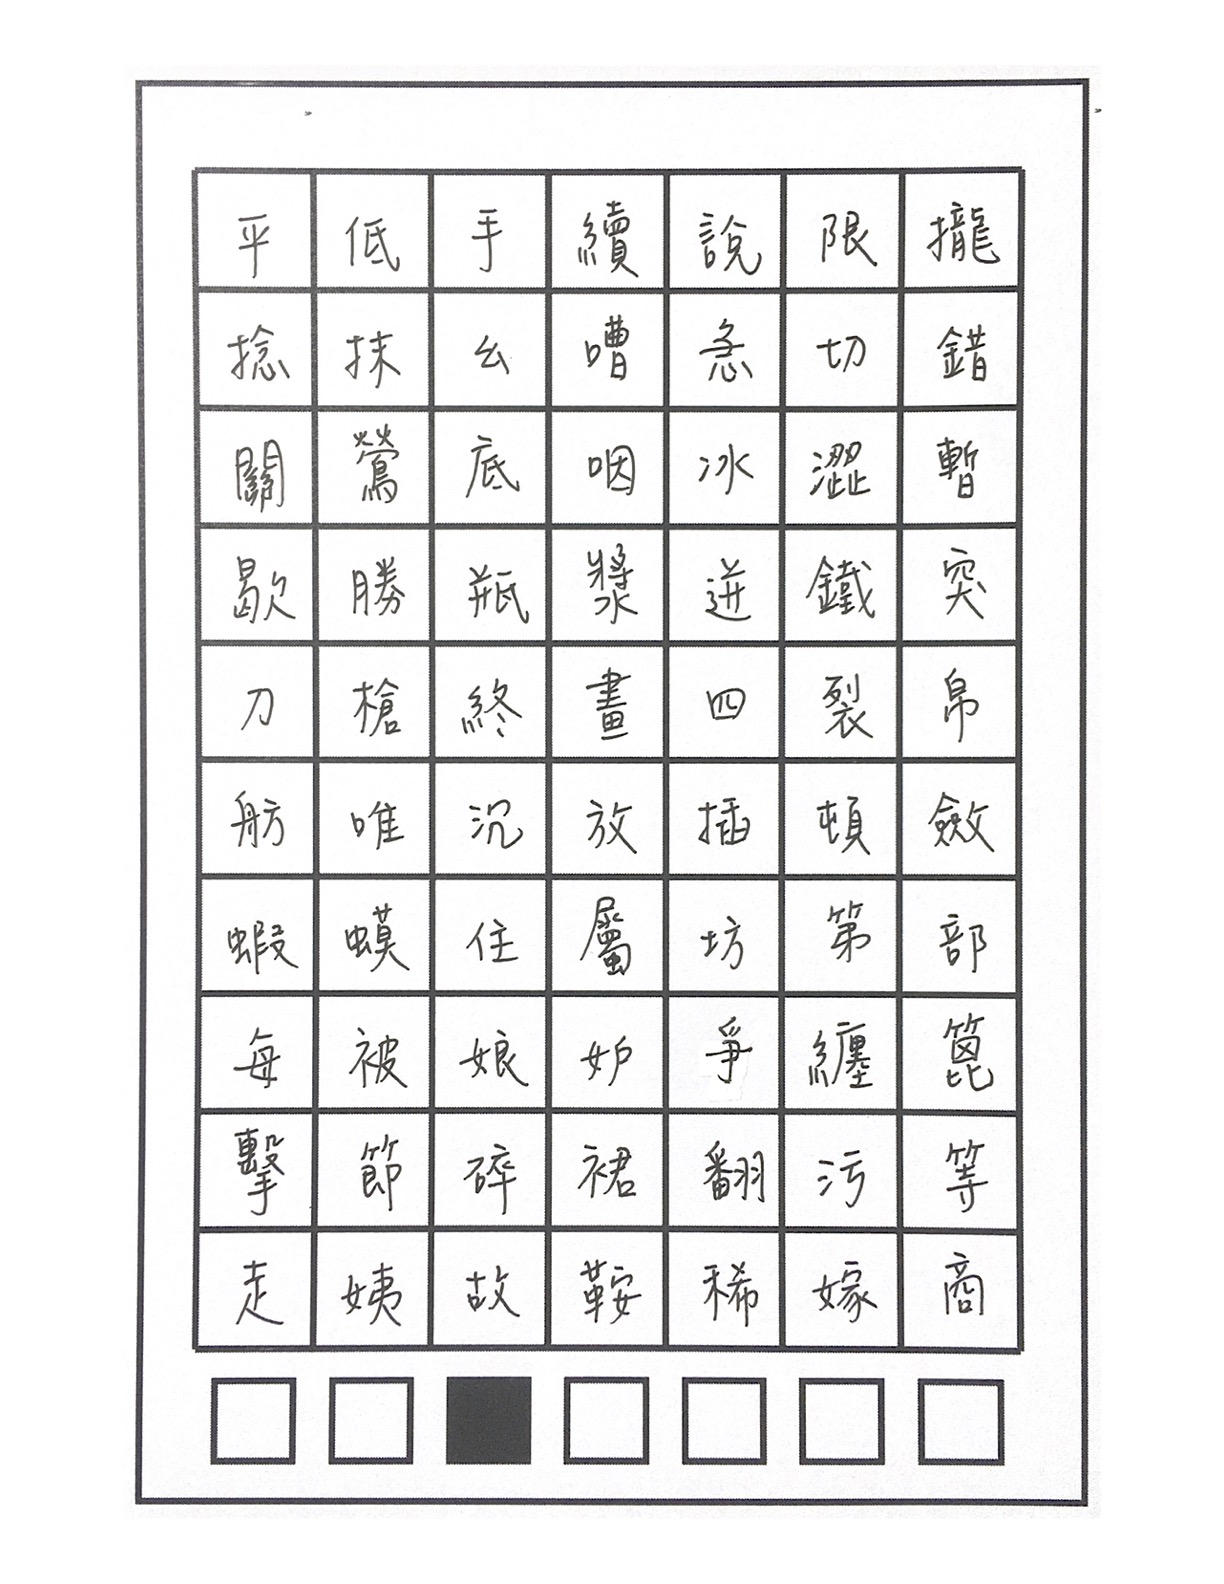 平低手續說限攏
捻抹么嘈急切錯
關鶯底咽冰澀暫
歇勝瓶漿迸鐵突
刀槍終畫四裂帛
舫唯沉放插頓斂
蝦蟆住屬坊第部
每被娘妒爭纏篦
擊節碎裙翻污等
走姨故鞍稀嫁商